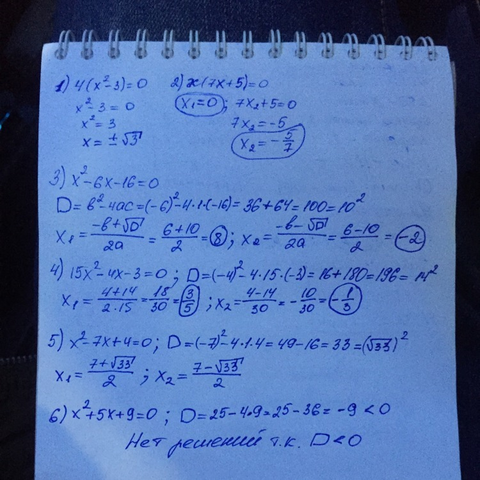 1) 4(x²-3)=0 2) x(7x+5)=0
x²-3=0 x₁=0; 7x₂+5=0
x²=3 7x₂=-5
x=±√3 x₂=-5/7
3) x²-6x-16=0
D=b²-4ac=(-6)²-4·1·(-16)=36+64=100=10²
x₁=(-b+√D)/2a=(6+10)/2=8; x₂=(-b-√D)/2a=(6-10)/2=-2
4) 15x²-4x-3=0; D=(-4)²-4·15·(-3)=16+180=196=14²
x₁=(4+14)/(2·15)=18/30=3/5; x₂=(4-14)/30=-10/30=-1/3
5) x²-7x+4=0; D=(-7)²-4·1·4=49-16=33=(√33)²
x₁=(7+√33)/2; x₂=(7-√33)/2
6) x²+5x+9=0; D=25-4·9=25-36=-9<0
Нет решений т.к. D<0